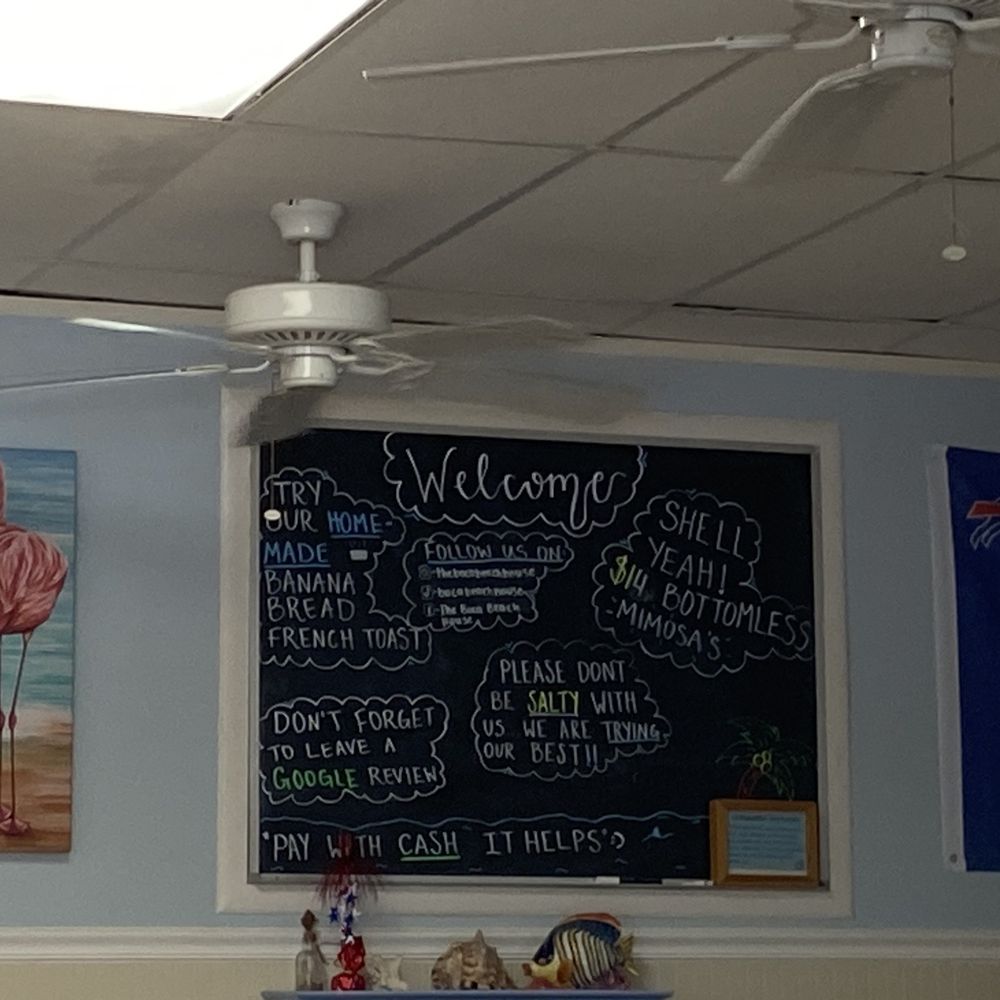 Welcome
TRY
OUR HOME-
MADE
BANANA
BREAD
FRENCH TOAST
FOLLOW US ON
-thebocabeachhouse
-bocabeachhouse
-The Boca Beach
House
SHELL
YEAH!
$14 BOTTOMLESS
-MIMOSA'S-
PLEASE DONT
BE SALTY WITH
US WE ARE TRYING
OUR BEST!!
DON'T FORGET
TO LEAVE A
GOOGLE REVIEW
"PAY WITH CASH IT HELPS":)